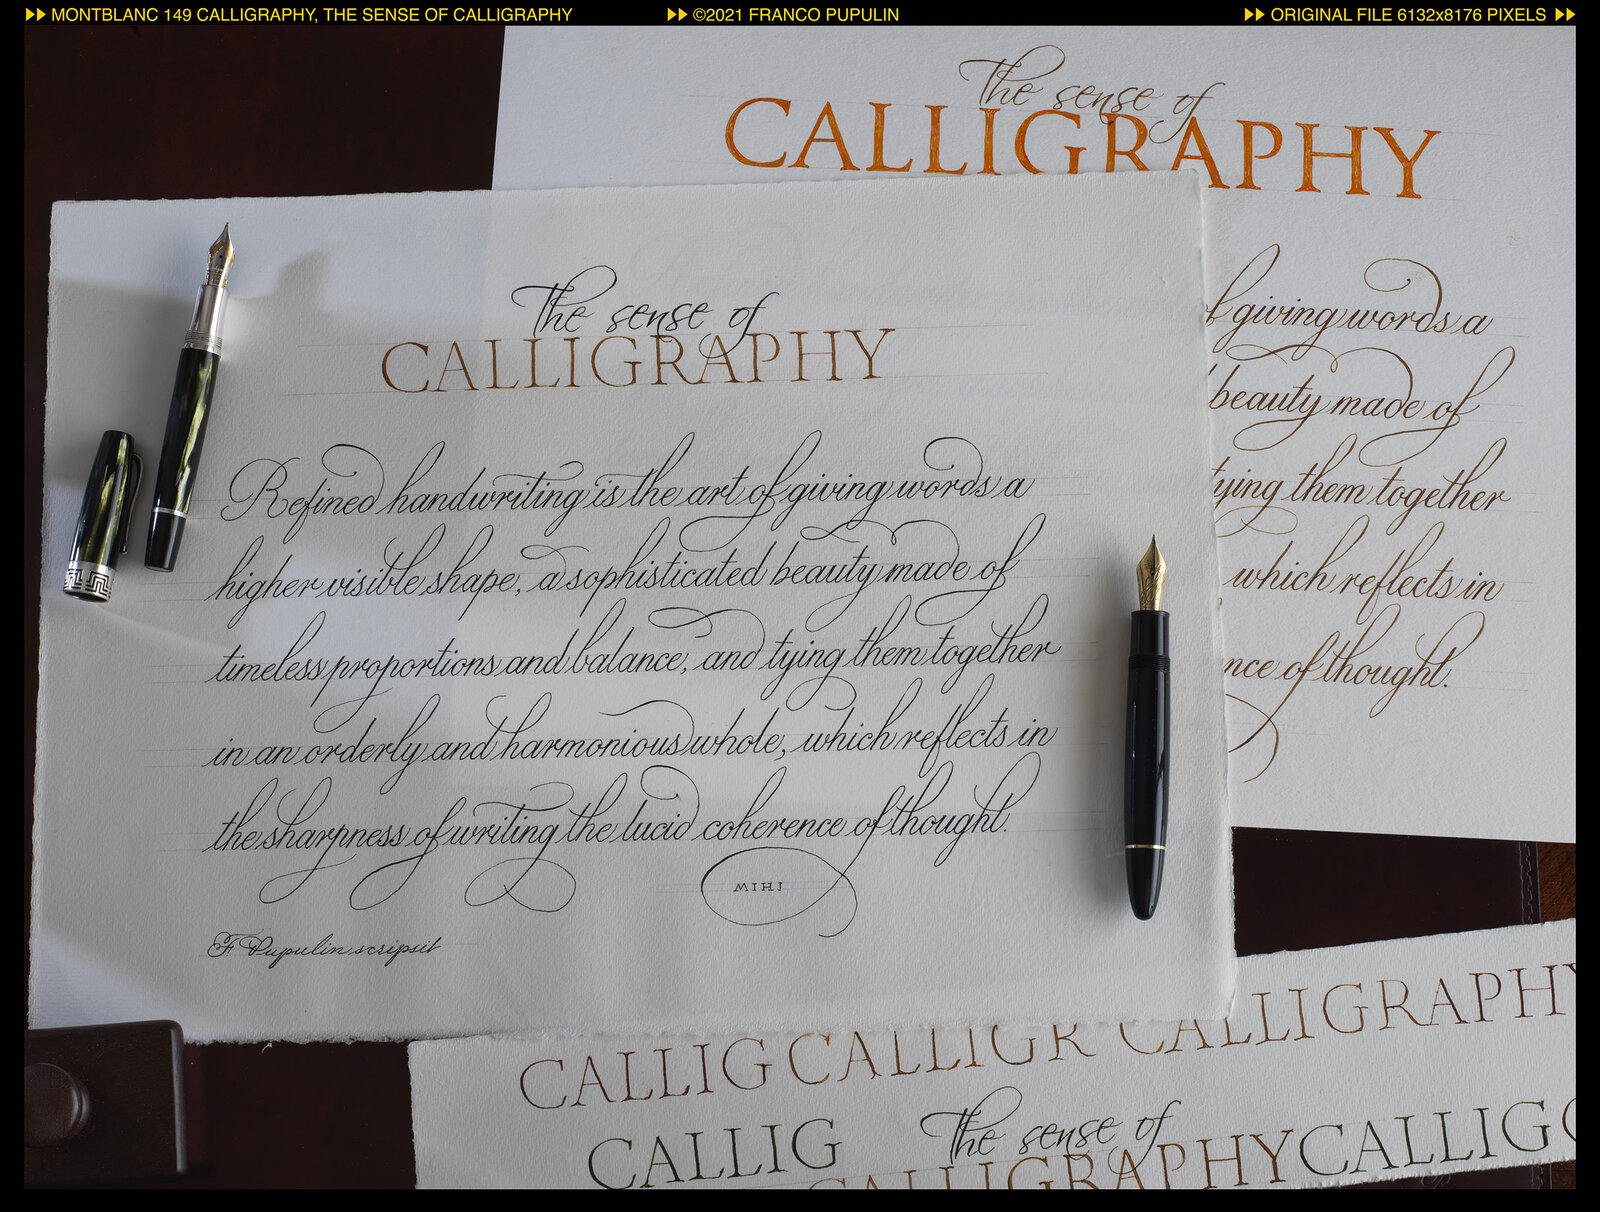 MONTBLANC 149 CALLIGRAPHY, THE SENSE OF CALLIGRAPHY
©2021 FRANCO PUPULIN
ORIGINAL FILE 6132x8176 PIXELS
The sense of
CALLIGRAPHY
of giving words a
beauty made of
tying them together
which reflects in
nce of thought.
The sense of
CALLIGRAPHY
Refined handwriting is the art of giving words a
higher visible shape, a sophisticated beauty made of
timeless proportions and balance, and tying them together
in an orderly and harmonious whole, which reflects in
the sharpness of writing the lucid coherence of thought.
MIHI
F. Pupulin scripsit
CALLIG CALLIGR CALLIGRAPHY
CALLIG The sense of CALLIG
CALLIGRAPHY